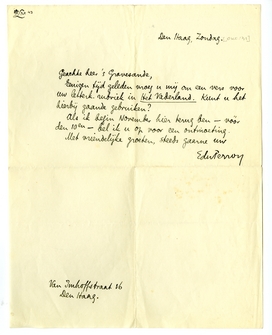 Den Haag, Zondag.
Geachte heer 's Gravesande,
Eenigen tijd geleden vroeg u mij om een vers voor
uw letterk. rubriek in Het Vaderland. Kunt u het
hierbij gaande gebruiken?
Als ik begin November hier terug ben — vóór
den 10en — bel ik u op voor een ontmoeting.
Met vriendelijke groeten, steeds gaarne uw
EduPerron
Van Imhoffstraat 26
Den Haag.